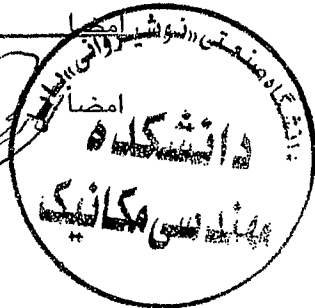 امضا
دانشگاه صنعتی «نوشیروانی» بابل
امضا
دانشکده
مهندسی مکانیک